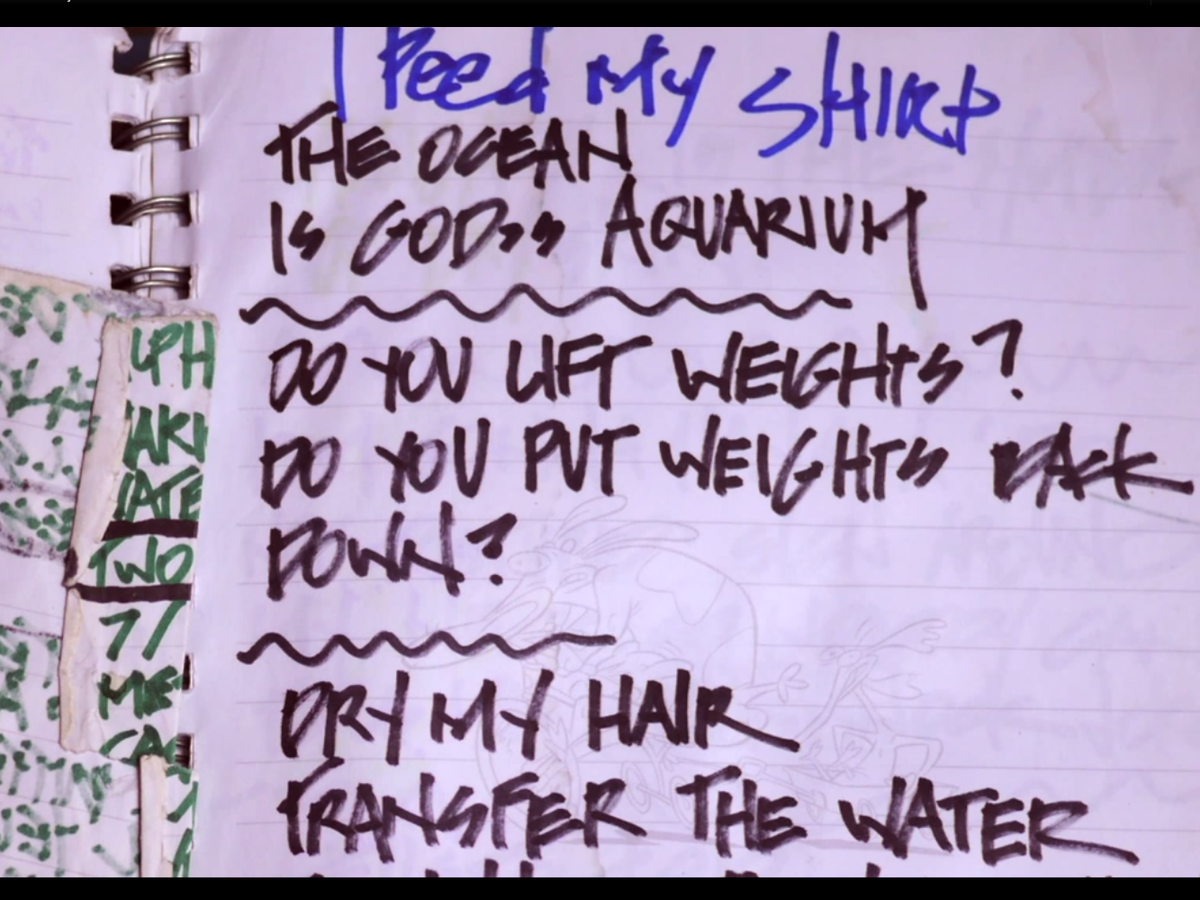 I Feed My SHIRt
THE OCEAN
IS GOD'S AQUARIUM
DO YOU LIFT WEIGHTS?
DO YOU PUT WEIGHTS BACK
DOWN?
DRY MY HAIR
TRANSFER THE WATER
LPH
TWO
77
ME
CA